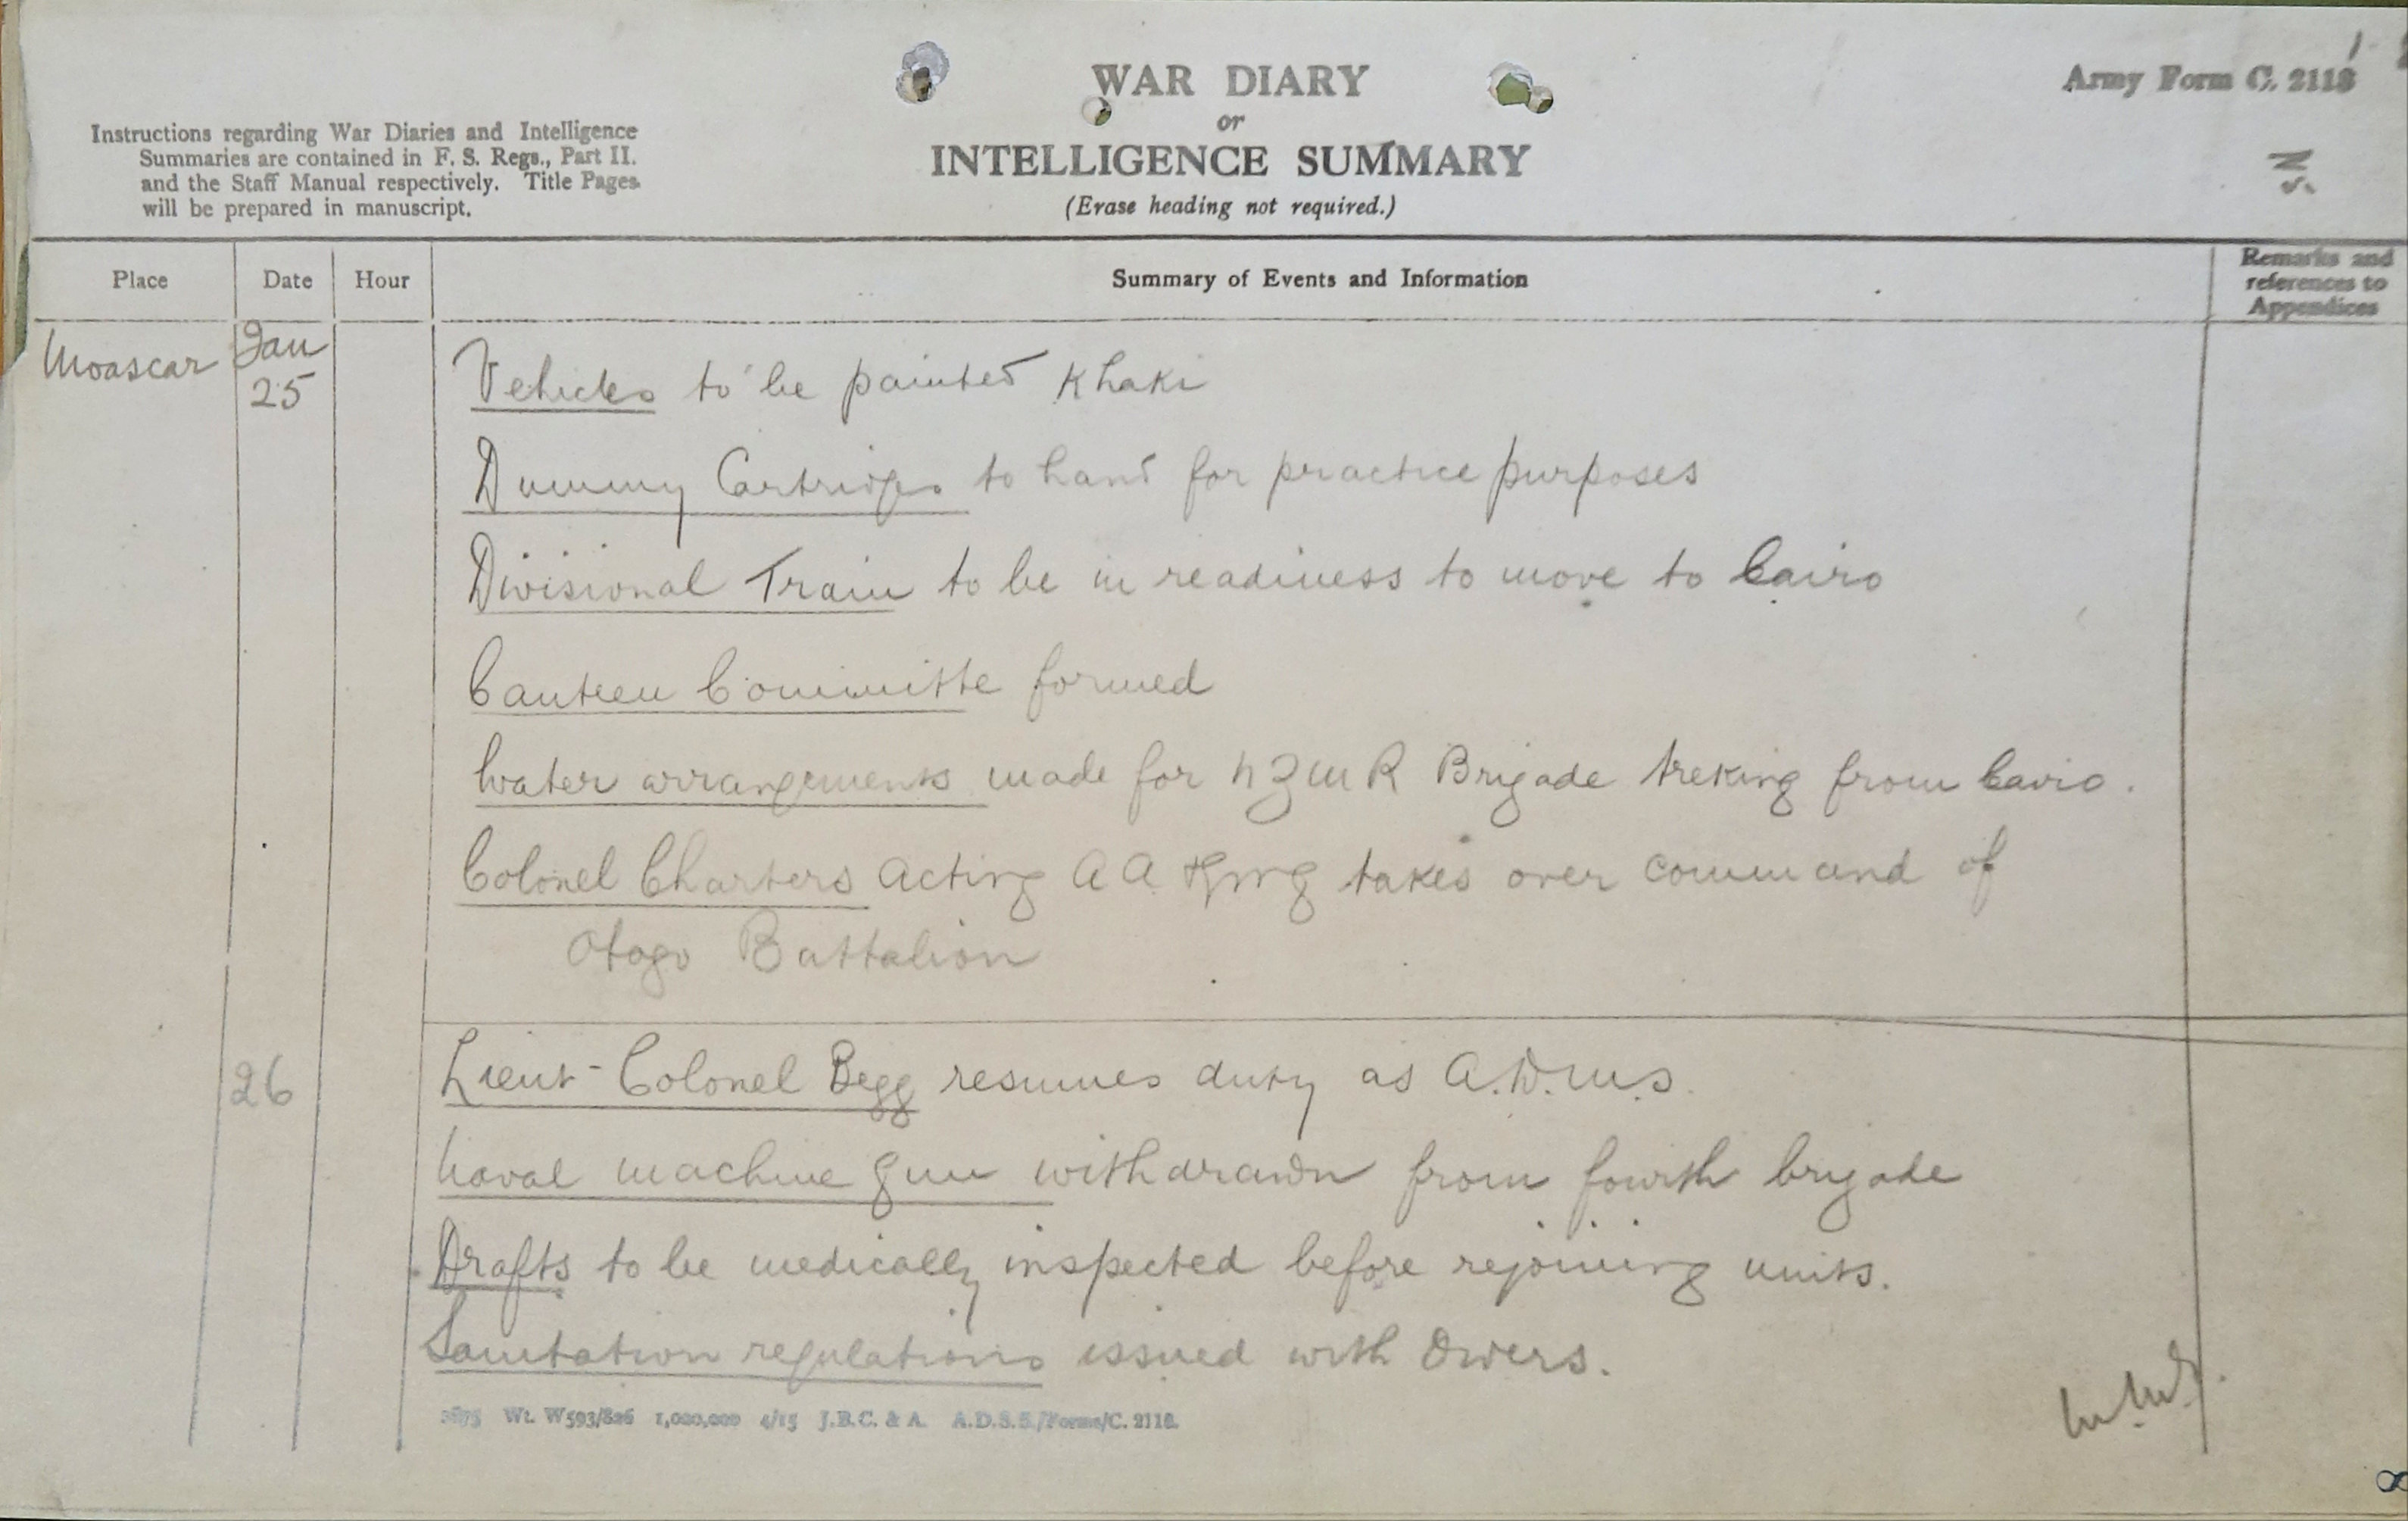 WAR DIARY
or
INTELLIGENCE SUMMARY
(Erase heading not required.)
Army Form C. 2118
Instructions regarding War Diaries and Intelligence
Summaries are contained in F. S. Regs., Part II.
and the Staff Manual respectively. Title Pages
will be prepared in manuscript.
Place Date Hour Summary of Events and Information
Remarks and
references to
Appendices
Moascar Jan
25
Vehicles to be painted Khaki
Dummy Cartridges to hand for practice purposes
Divisional Train to be in readiness to move to Cairo
Canteen Committe formed
Water arrangements made for NZMR Brigade treking from Cairo.
Colonel Charters acting AA & QMG takes over command of
Otago Battalion
26 Lieut-Colonel Begg resumes duty as A.D.M.S.
Naval machine gun withdrawn from fourth brigade
Drafts to be medically inspected before rejoining units.
Sanitation regulations issued with Orders.
Wt. W593/826 1,000,000 4/15 J.B.C. & A. A.D.S.S./Forms/C. 2118.